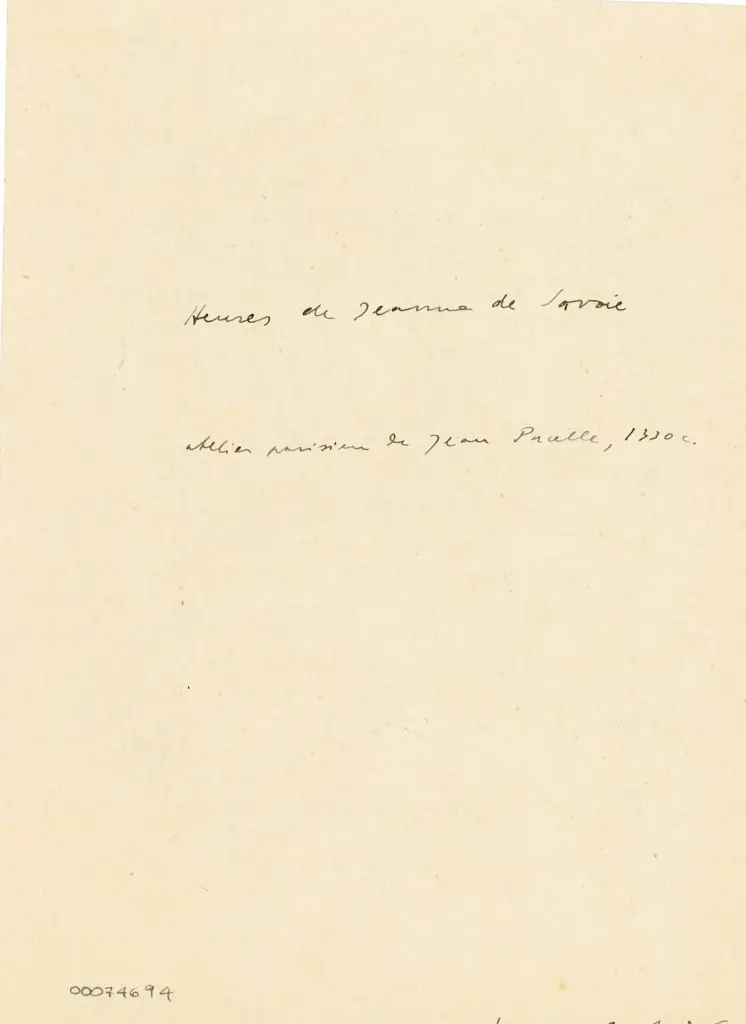 Heures de Jeanne de Savoie
atelier parisien de Jean Pucelle, 1330 c.
00074694